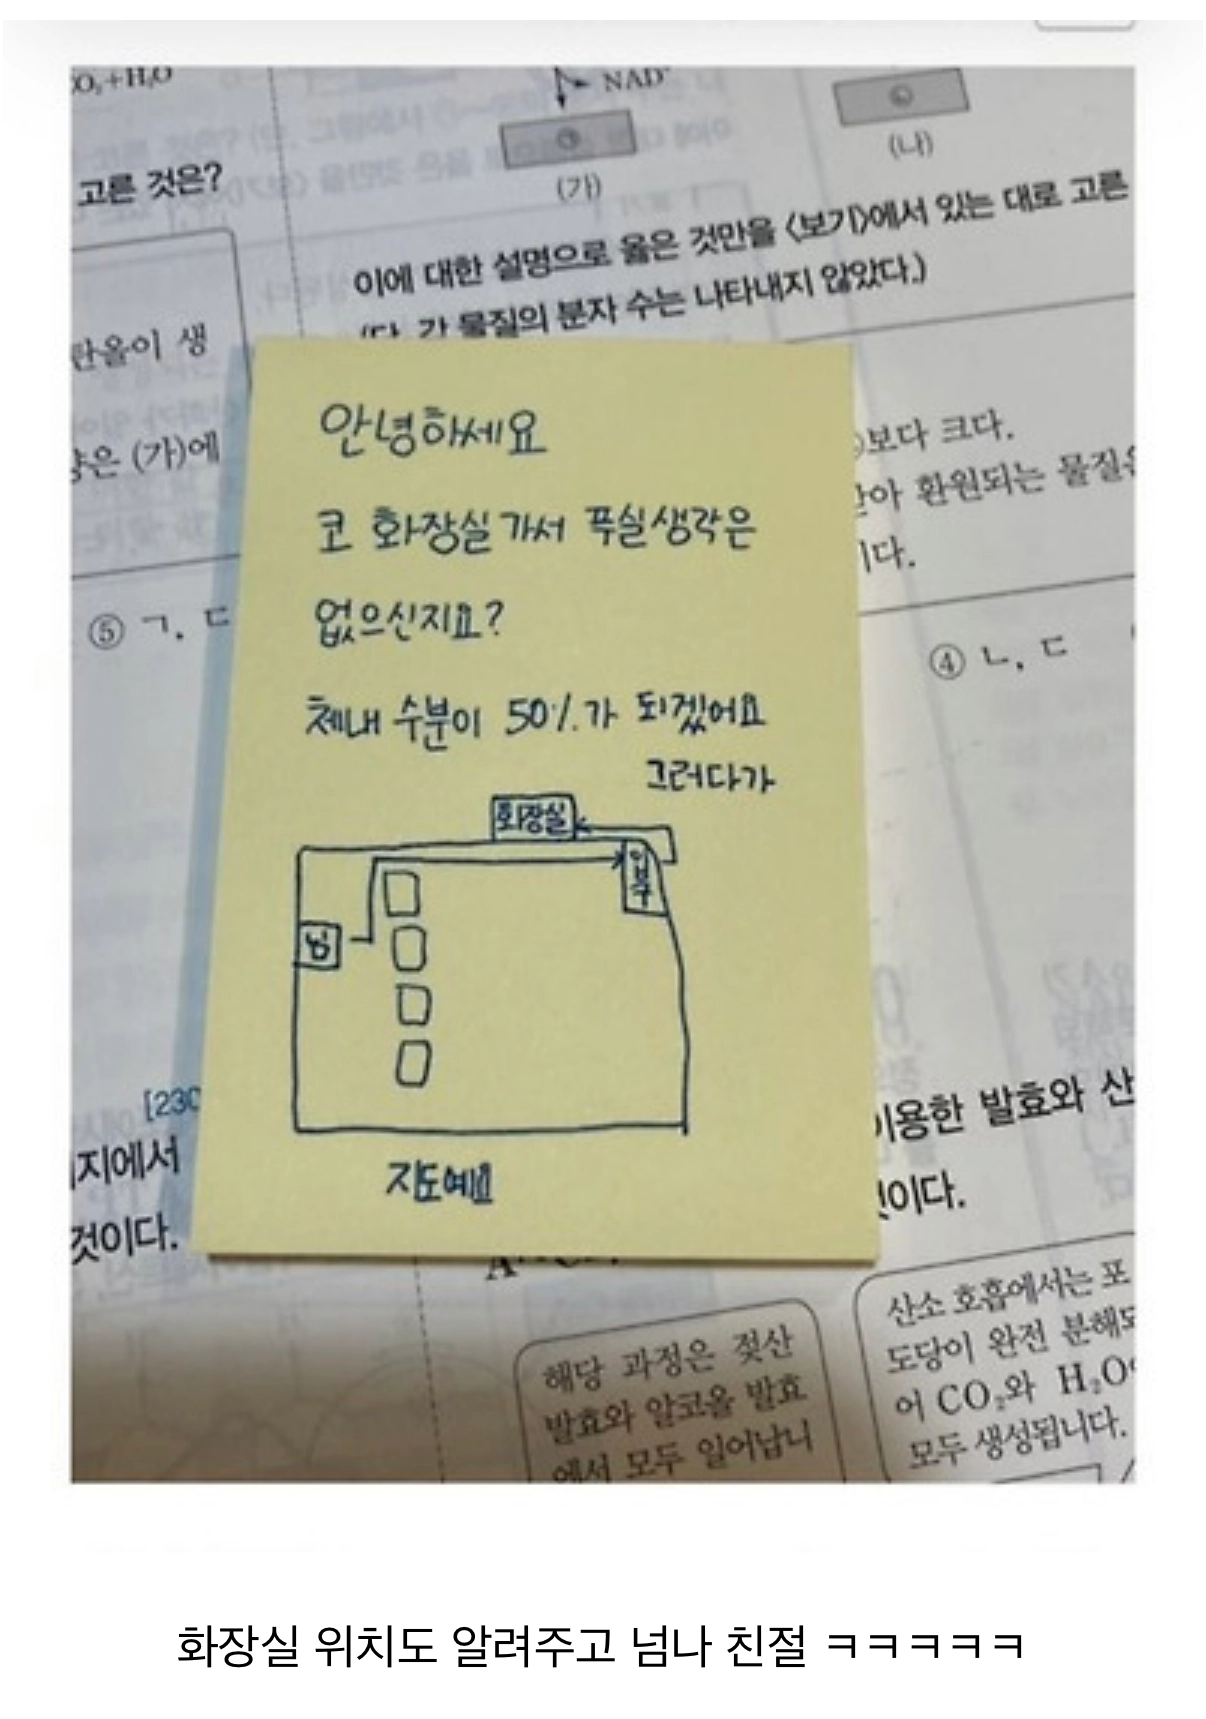 O₂+H₂O
NAD⁺
(가)
(나)
고른 것은?
이에 대한 설명으로 옳은 것만을 〈보기〉에서 있는 대로 고른
(단, 각 물질의 분자 수는 나타내지 않았다.)
탄올이 생
(가)에
보다 크다.
환원되는 물질은
이다.
⑤ ㄱ, ㄷ
④ ㄴ, ㄷ
안녕하세요
코 화장실 가서 푸실 생각은
없으신지요?
체내 수분이 50%가 되겠어요
그러다가
화장실
입구
님
지도예요
[230
지에서
것이다.
이용한 발효와 산
것이다.
해당 과정은 젖산
발효와 알코올 발효
에서 모두 일어납니
산소 호흡에서는 포
도당이 완전 분해되
어 CO₂와 H₂O
모두 생성됩니다.
화장실 위치도 알려주고 넘나 친절 ㅋㅋㅋㅋㅋ